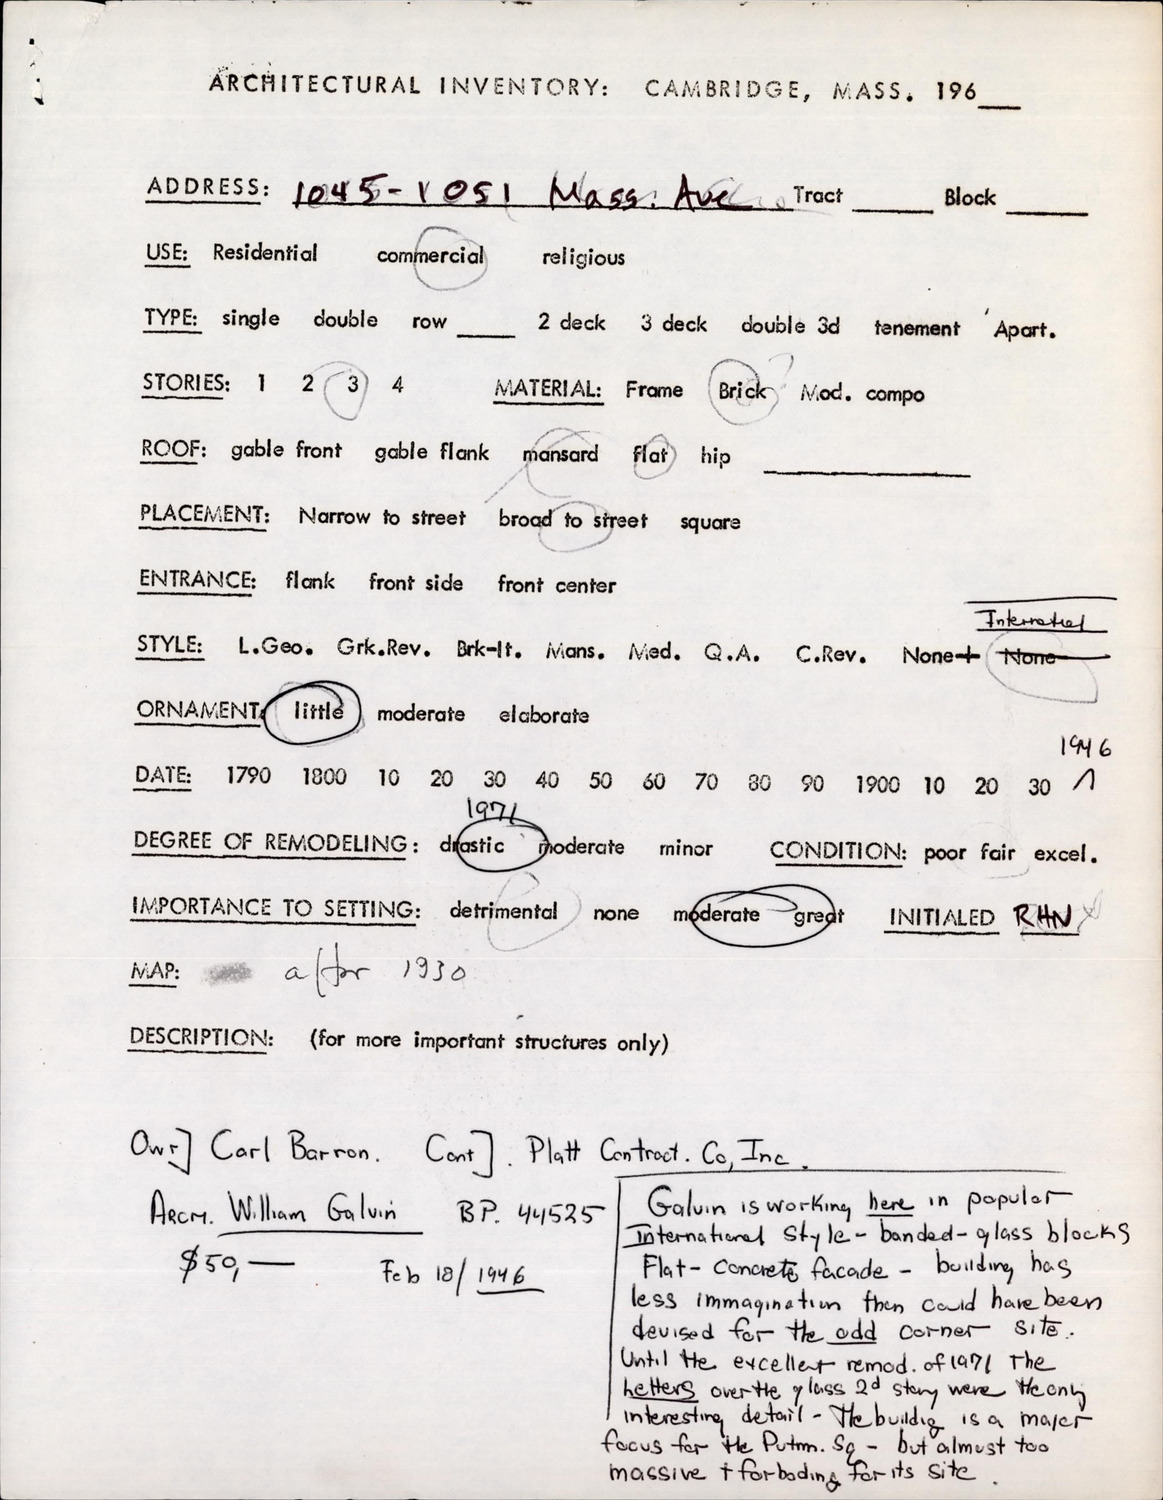 ARCHITECTURAL INVENTORY: CAMBRIDGE, MASS. 196___
ADDRESS: 1045-1051 Mass. Ave Tract ______ Block ______
USE: Residential commercial religious
TYPE: single double row ____ 2 deck 3 deck double 3d tenement Apart.
STORIES: 1 2 3 4 MATERIAL: Frame Brick ? Mod. compo
ROOF: gable front gable flank mansard flat hip ______________
PLACEMENT: Narrow to street broad to street square
ENTRANCE: flank front side front center
Internatiel
STYLE: L.Geo. Grk.Rev. Brk-It. Mans. Med. Q.A. C.Rev. None+ None-
ORNAMENT: little moderate elaborate
1946
DATE: 1790 1800 10 20 30 40 50 60 70 80 90 1900 10 20 30
1971
DEGREE OF REMODELING: drastic moderate minor CONDITION: poor fair excel.
IMPORTANCE TO SETTING: detrimental none moderate great INITIALED RHN
MAP: after 1930
DESCRIPTION: (for more important structures only)
Owr] Carl Barron. Cont]. Platt Contract. Co, Inc.
Arch. William Galvin BP. 44525
$50,— Feb 18/1946
Galvin is working here in popular
International Style - banded - glass blocks
Flat - concrete facade - building has
less immagination then could have been
devised for the odd corner site.
Until the excellent remod. of 1971 the
letters over the glass 2d story were the only
interesting detail - The buildig is a major
focus for the Putnm. Sq - but almost too
massive + forboding for its site.